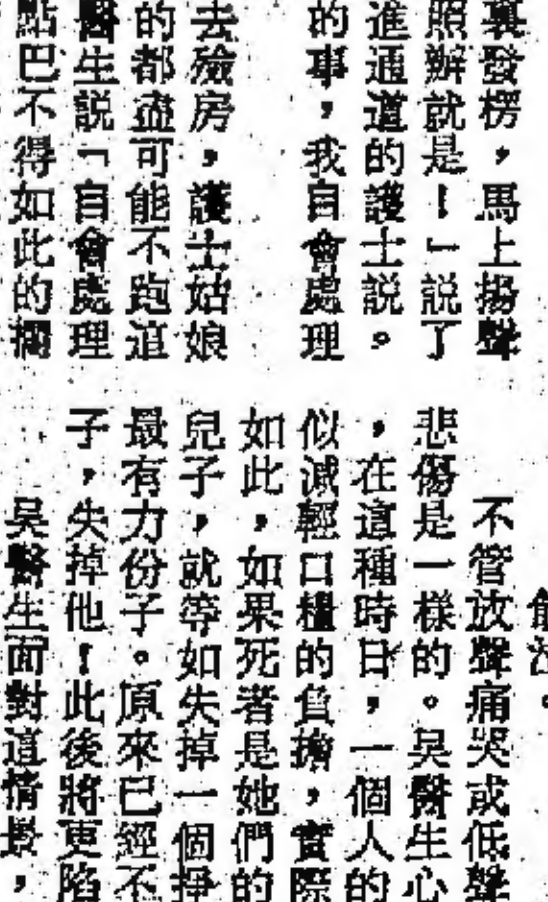 裏發楞，馬上揚聲
照辦就是！」説了
進通道的護士説。
的事，我自會處理
去殮房，護士姑娘
的都盡可能不跑這
醫生説「自會處理
點巴不得如此的
不管放聲痛哭或低聲
悲傷是一樣的。吳醫生心
，在這種時日，一個人的
似減輕口糧的負擔，實際
如此，如果死者是她們的
兒子，就等如失掉一個掙
最有力份子。原來已經不
子，失掉他！此後將更陷
吳醫生面對這情景，